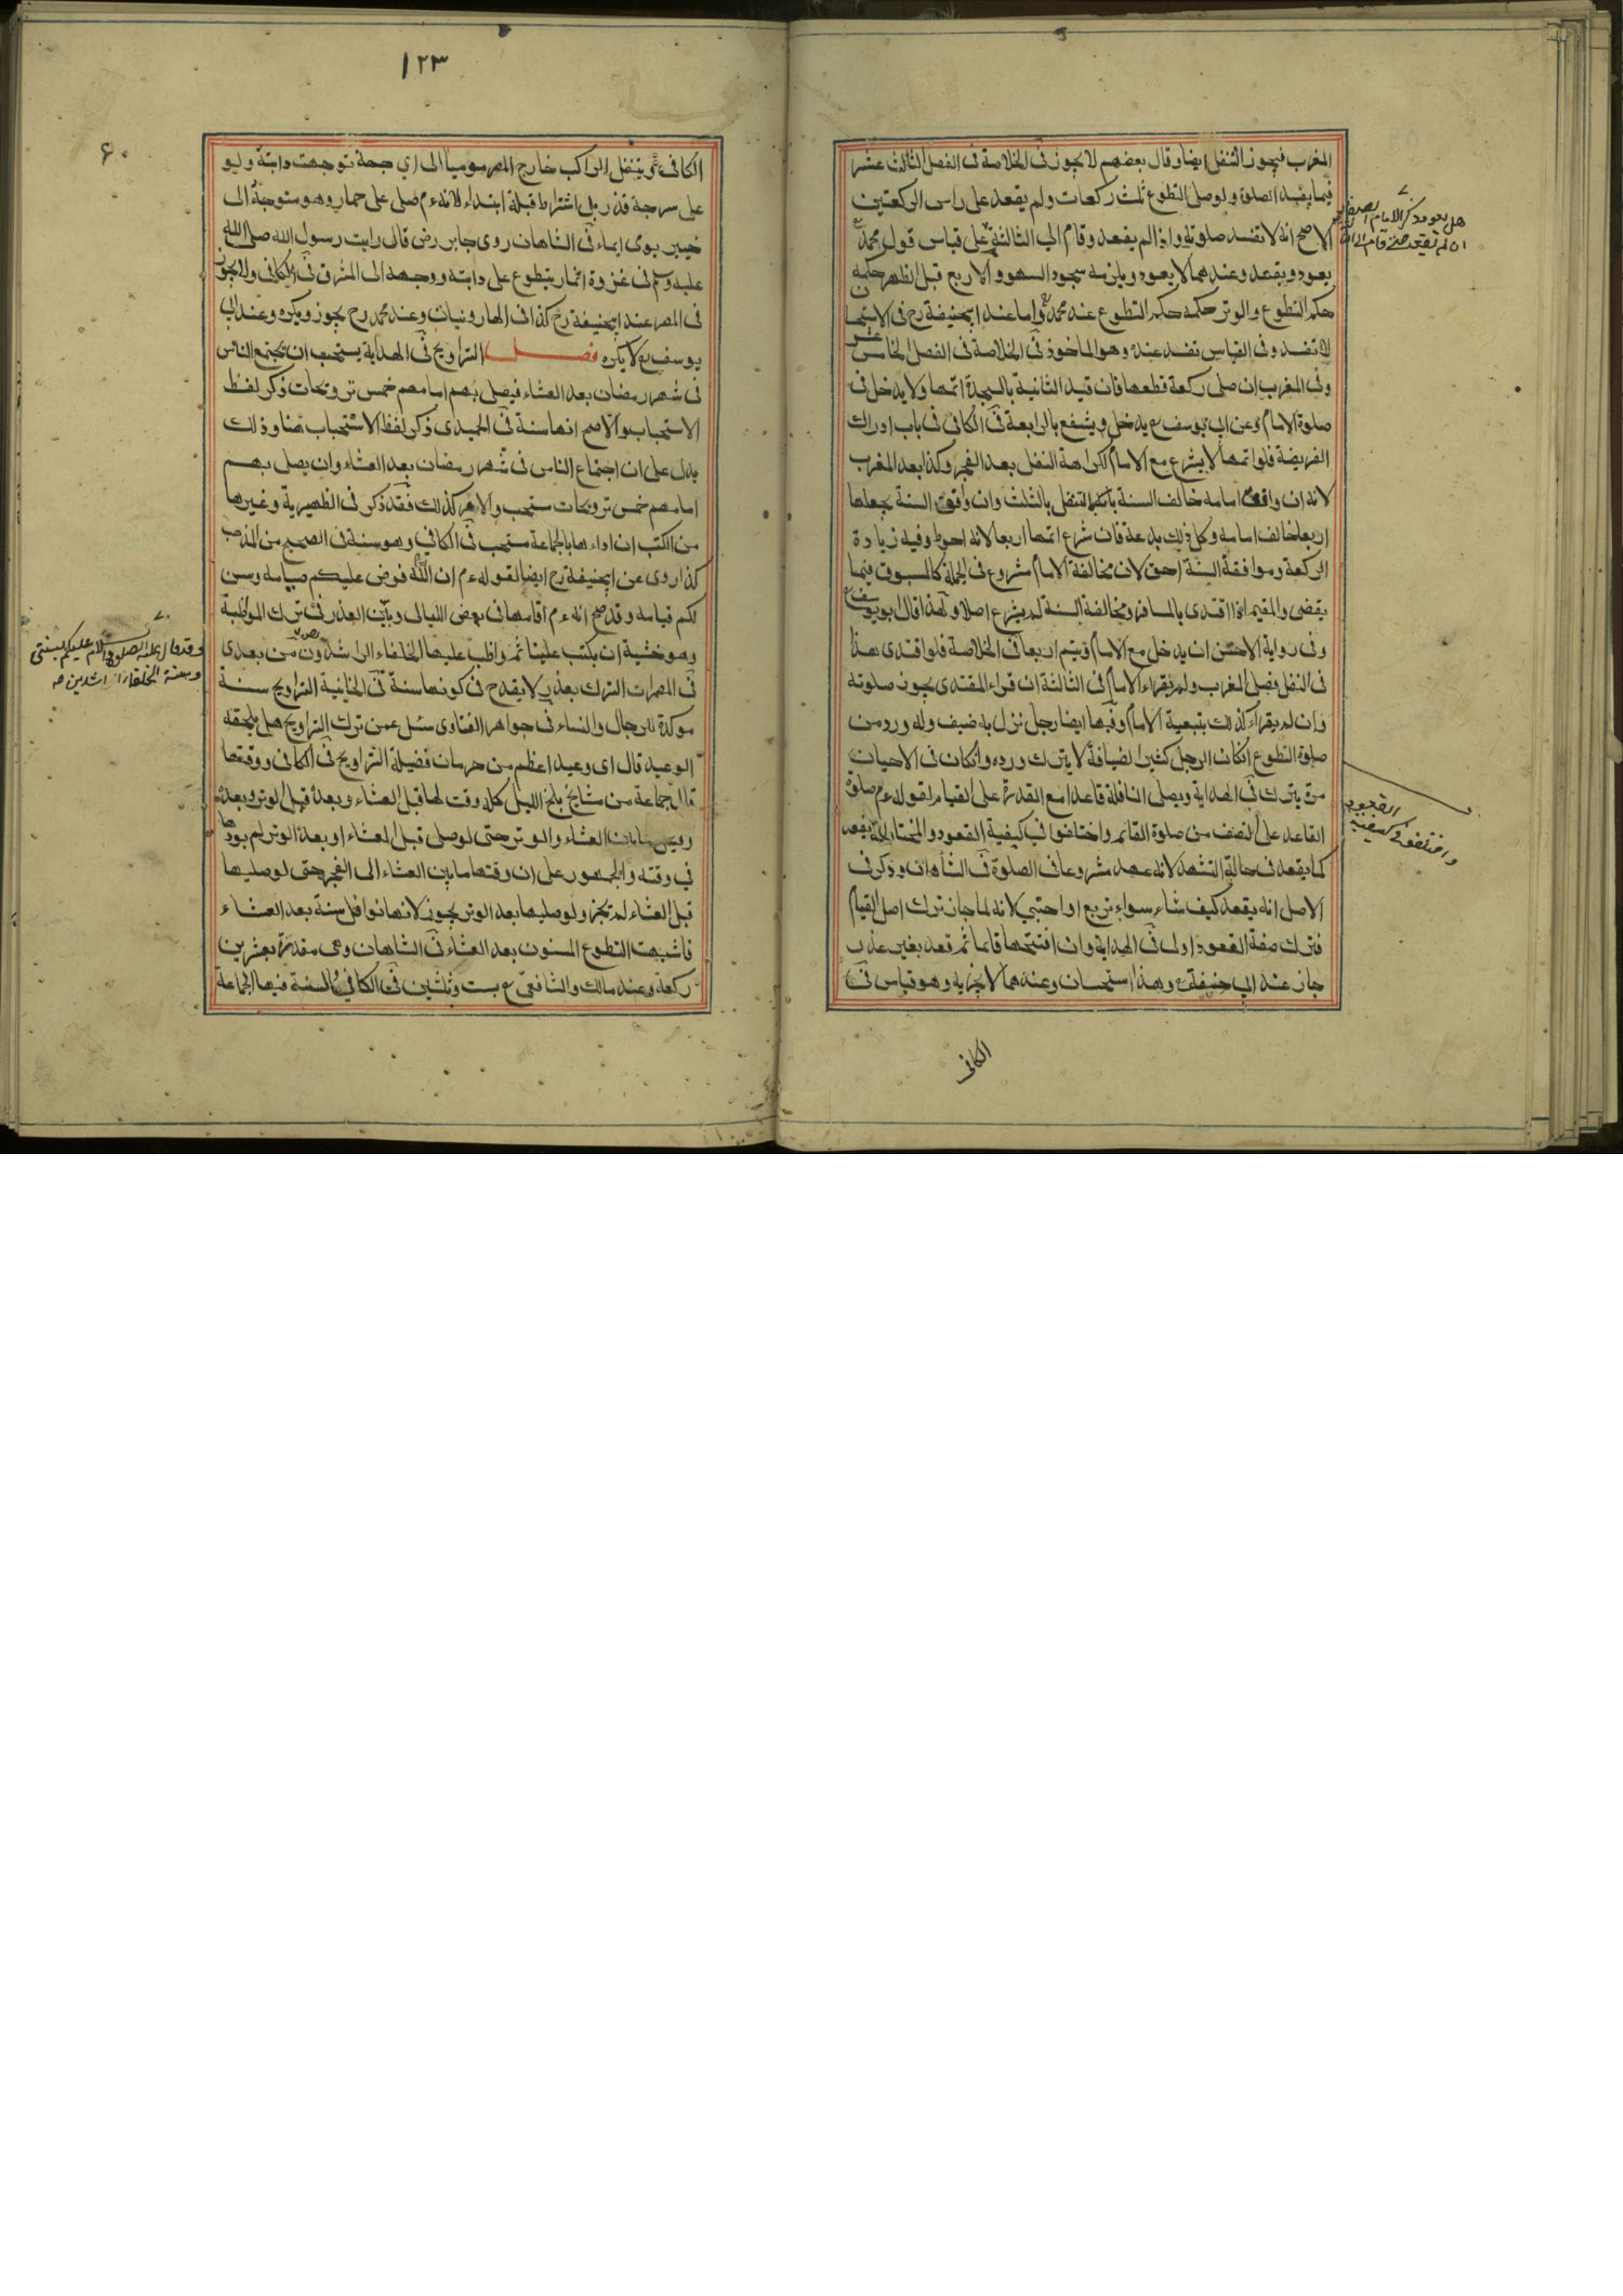 المغرب فيجوز التنفل ايضا وقال بعضهم لا يجوز فى الخلاصة فى الفصل الثالث عشر
فيما يفسد الصلوة ولو صلى التطوع ثلث ركعات ولم يقعد على راس الركعتين
الاصح انه لا تفسد صلوته واذا لم يقعد وقام الى الثالثة على قياس قول محمد
يعود ويقعد وعندهما لا يعود ويلزمه سجود السهو والاربع قبل الظهر حكمه
حكم التطوع والوتر حكمه حكم التطوع عند محمد واما عند ابيحنيفة رح فى الاستحسان
لا تفسد وفى القياس تفسد عنده وهو الماخوذ فى الخلاصة فى الفصل الخامس عشر
وفى المغرب ان صلى ركعة قطعها فان قيد الثانية بالسجدة اتمها ولا يدخل فى
صلوة الامام وعن ابى يوسف ع يدخل ويشفع بالرابعة فى الكافى فى باب ادراك
الفريضة فلو اتمها لا يشرع مع الامام لكراهة النفل بعد الفجر وكذا بعد المغرب
لانه ان وافق امامه خالف السنة بالتنفل بالثلث وان وافق السنة بجعلها
اربعا خالف امامه وكل ذلك بدعة فان شرع اتمها اربعا لانه احوط وفيه زيادة
الركعة وموافقة السنة احق لان مخالفة الامام مشروع فى الجملة كالمسبوق فيما
يقضى والمقيم اذا اقتدى بالمسافر ومخالفة السنة لم يشرع اصلا ولهذا قال ابو يوسف
وفى رواية الاحسن ان يدخل مع الامام ويتم اربعا فى الخلاصة فلو اقتدى هذا
فى النفل فصلى المغرب ولم يقراء الامام فى الثالثة ان قراء المقتدى يجوز صلوته
وان لم يقراء كذلك بتبعية الامام وفيها ايضا رجل نزل به ضيف وله ورد من
صلوة التطوع ان كان الرجل كثير الضيافة لا يترك ورده وان كان فى الاحيان
مرة يترك فى الهداية ويصلى النافلة قاعدا مع القدرة على القيام لقوله ءم صلوة
القاعد على النصف من صلوة القائم واختلفوا فى كيفية القعود والمختار انه يقعد
كما يقعد فى حالة التشهد لانه عهد مشروعا فى الصلوة فى الشاهان وذكر فى
الاصل انه يقعد كيف شاء سواء تربع او احتبى لانه لما جاز ترك اصل القيام
فترك صفة القعود اولى فى الهداية وان افتتحها قائما ثم قعد بغير عذر
جاز عند ابى حنيفة وهذا استحسان وعندهما لا يجزيه وهو قياس فى
الكافى
هل يعود ذكر الامام
واختلفوا فى كيفية القعود
١٢٣
۶۰
الكافى ويتنفل الراكب خارج المصر موميا الى اى جهة توجهت دابته ولو
على سرجه قذر بلا اشتراط قبلة ابتداء لانه ءم صلى على حمار وهو متوجه الى
خيبر يومى ايماء فى الشاهان روى جابر رض قال رايت رسول الله صلى الله
عليه وسلم فى غزوة انمار يتطوع على دابته ووجهه الى المشرق فى الكافى ولا يجوز
فى المصر عند ابيحنيفة رح كذا فى الهارونيات وعند محمد رح يجوز ويكره وعند ابى
يوسف رح لا يكره فصل التراويح فى الهداية يستحب ان يجتمع الناس
فى شهر رمضان بعد العشاء فيصلى بهم امامهم خمس ترويحات ذكر لفظ
الاستحباب والاصح انها سنة فى الحميدى ذكر لفظ الاستحباب هنا وذلك
يدل على ان اجتماع الناس فى شهر رمضان بعد العشاء وان يصلى بهم
امامهم خمس ترويحات مستحب والامر كذلك فقد ذكر فى الظهيرية وغيرها
من الكتب ان اداءها بالجماعة مستحب فى الكافى وهو سنة فى الصحيح من المذهب
كذا روى عن ابيحنيفة رح ايضا لقوله ءم ان الله فرض عليكم صيامه وسن
لكم قيامه وقد صح انه ءم اقامها فى بعض الليالى وبين العذر فى ترك المواظبة
وهو خشية ان يكتب علينا ثم واظب عليها الخلفاء الراشدون من بعدى
فى المضمرات الترك بعذر لا يقدح فى كونها سنة فى الخانية التراويح سنة
موكدة للرجال والنساء فى جواهر الفتاوى سئل عمن ترك التراويح هل يلحقه
الوعيد قال اى وعيد اعظم من حرمان فضيلة التراويح فى الكافى ووقتها
قال جماعة من مشايخ بلخ الليل كله وقت لها قبل العشاء وبعده قبل الوتر وبعده
وقيل ما بين العشاء والوتر حتى لو صلى قبل العشاء او بعد الوتر لم يودها
فى وقته والجمهور على ان وقتها ما بين العشاء الى الفجر حتى لو صليها
قبل العشاء لم تجز ولو صليها بعد الوتر يجوز لانها نوافل سنة بعد العشاء
فاشبهت التطوع المسنون بعد العشاء فى الشاهان وهى مقدرة بعشرين
ركعة وعند مالك والشافعى ع بست وثلثين فى الكافى والسنة فيها الجماعة
وقد قال عليه الصلوة والسلام عليكم بسنتى
وسنة الخلفاء الراشدين